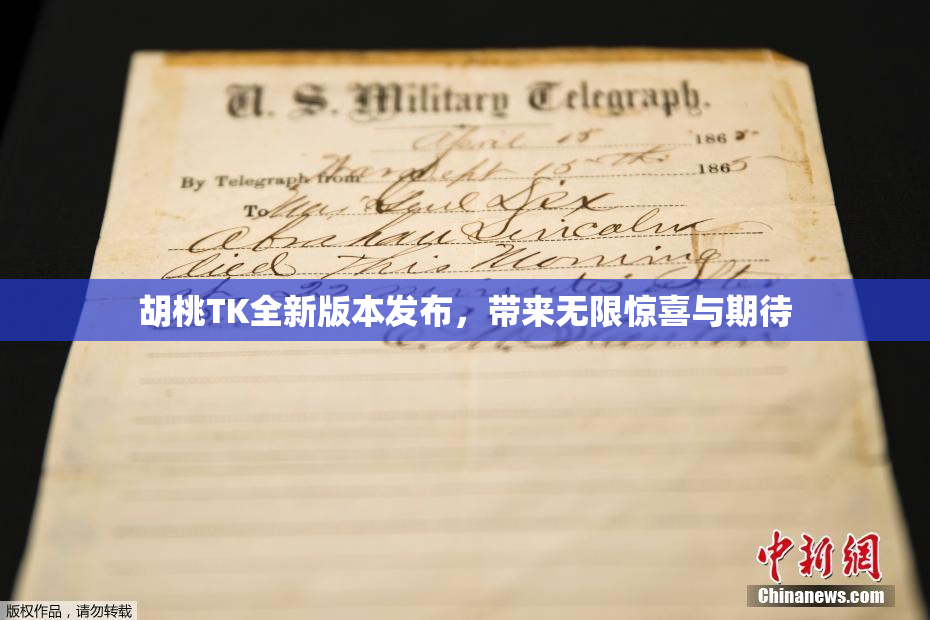 U. S. Military Telegraph.
April 15 1865
By Telegraph from War Dept 15th 1865
To Maj Genl Dix
Abraham Lincoln
died This Morning
at 22 minutes after
胡桃TK全新版本发布，带来无限惊喜与期待
E. M. Stanton
中新网
Chinanews.com
版权作品，请勿转载